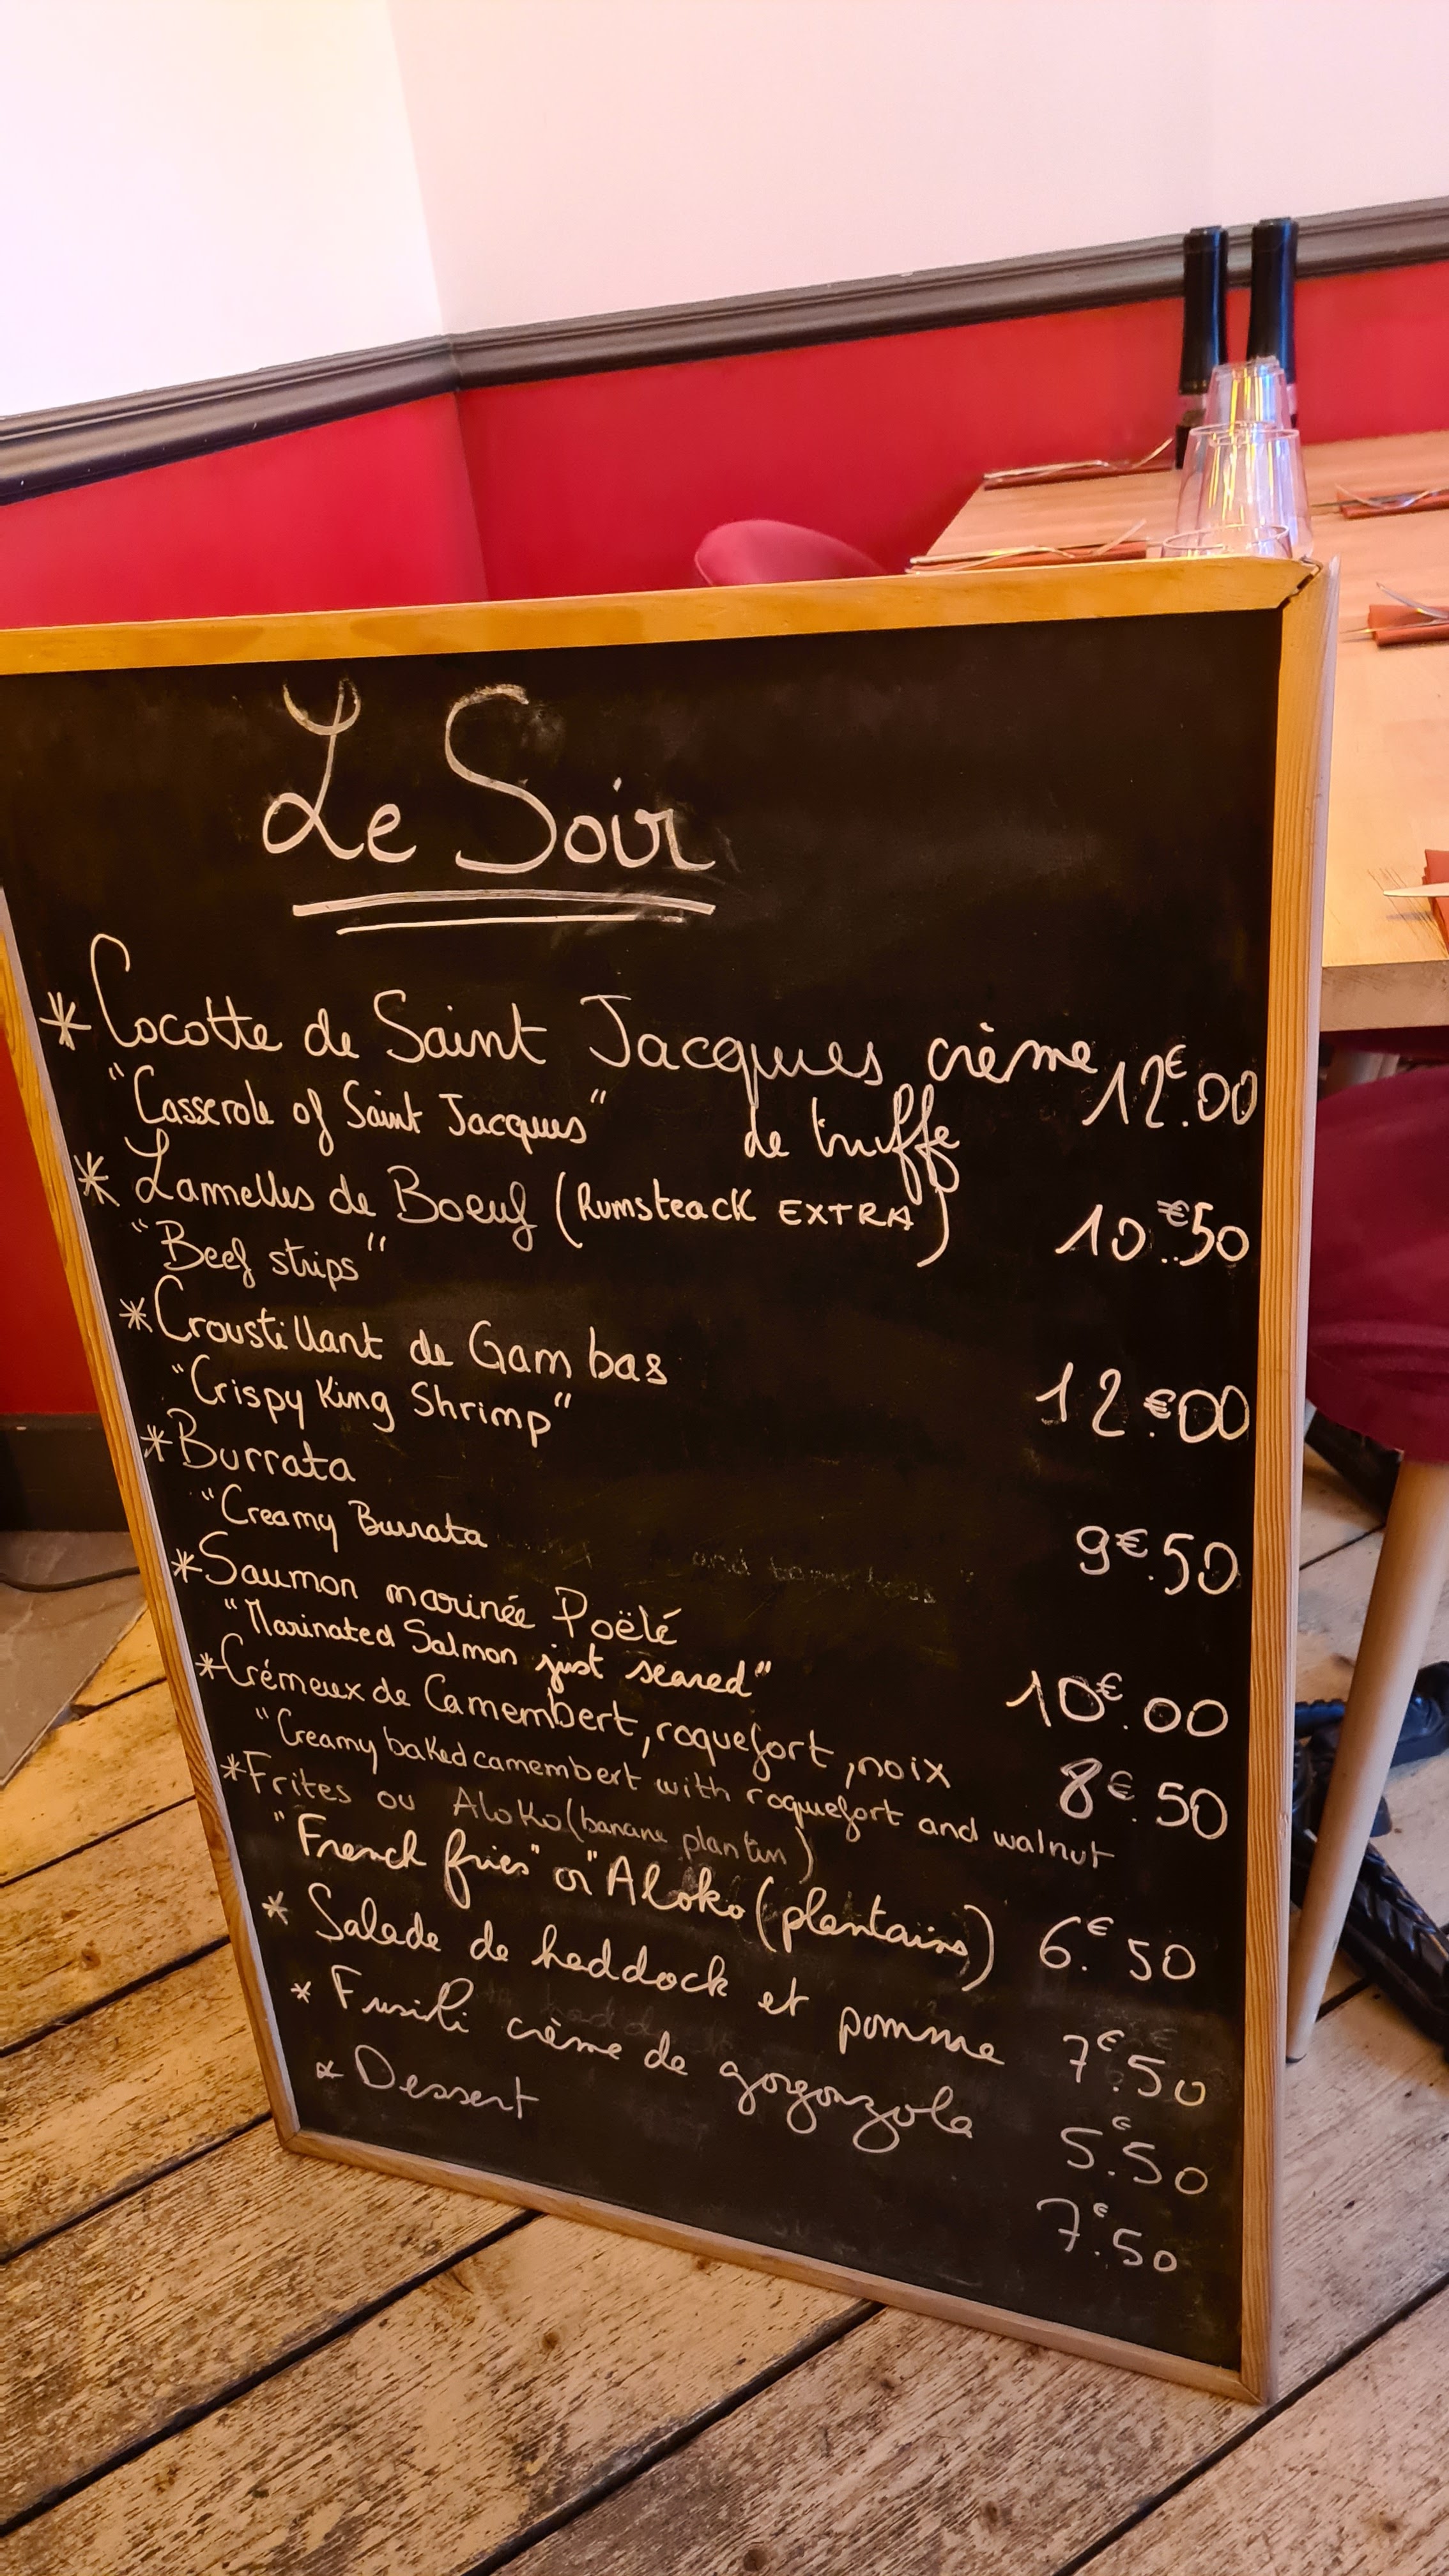 Le Soir
* Cocotte de Saint Jacques crème 12€.00
"Casserole of Saint Jacques" de truffe
* Lamelles de Boeuf (Rumsteack EXTRA) 10.€50
"Beef strips"
* Croustillant de Gambas
"Crispy King Shrimp" 12.€00
* Burrata
"Creamy Burrata 9€.50
* Saumon marinée Poëlé
"Marinated Salmon just seared" 10€.00
* Crémeux de Camembert, roquefort, noix 8€.50
"Creamy baked camembert with roquefort and walnut
* Frites ou Aloko (banane plantin)
"French fries" or "Aloko (plantains) 6.€50
* Salade de haddock et pomme 7€.50
* Fusili crème de gorgonzola 5.€50
* Dessert 7.€50